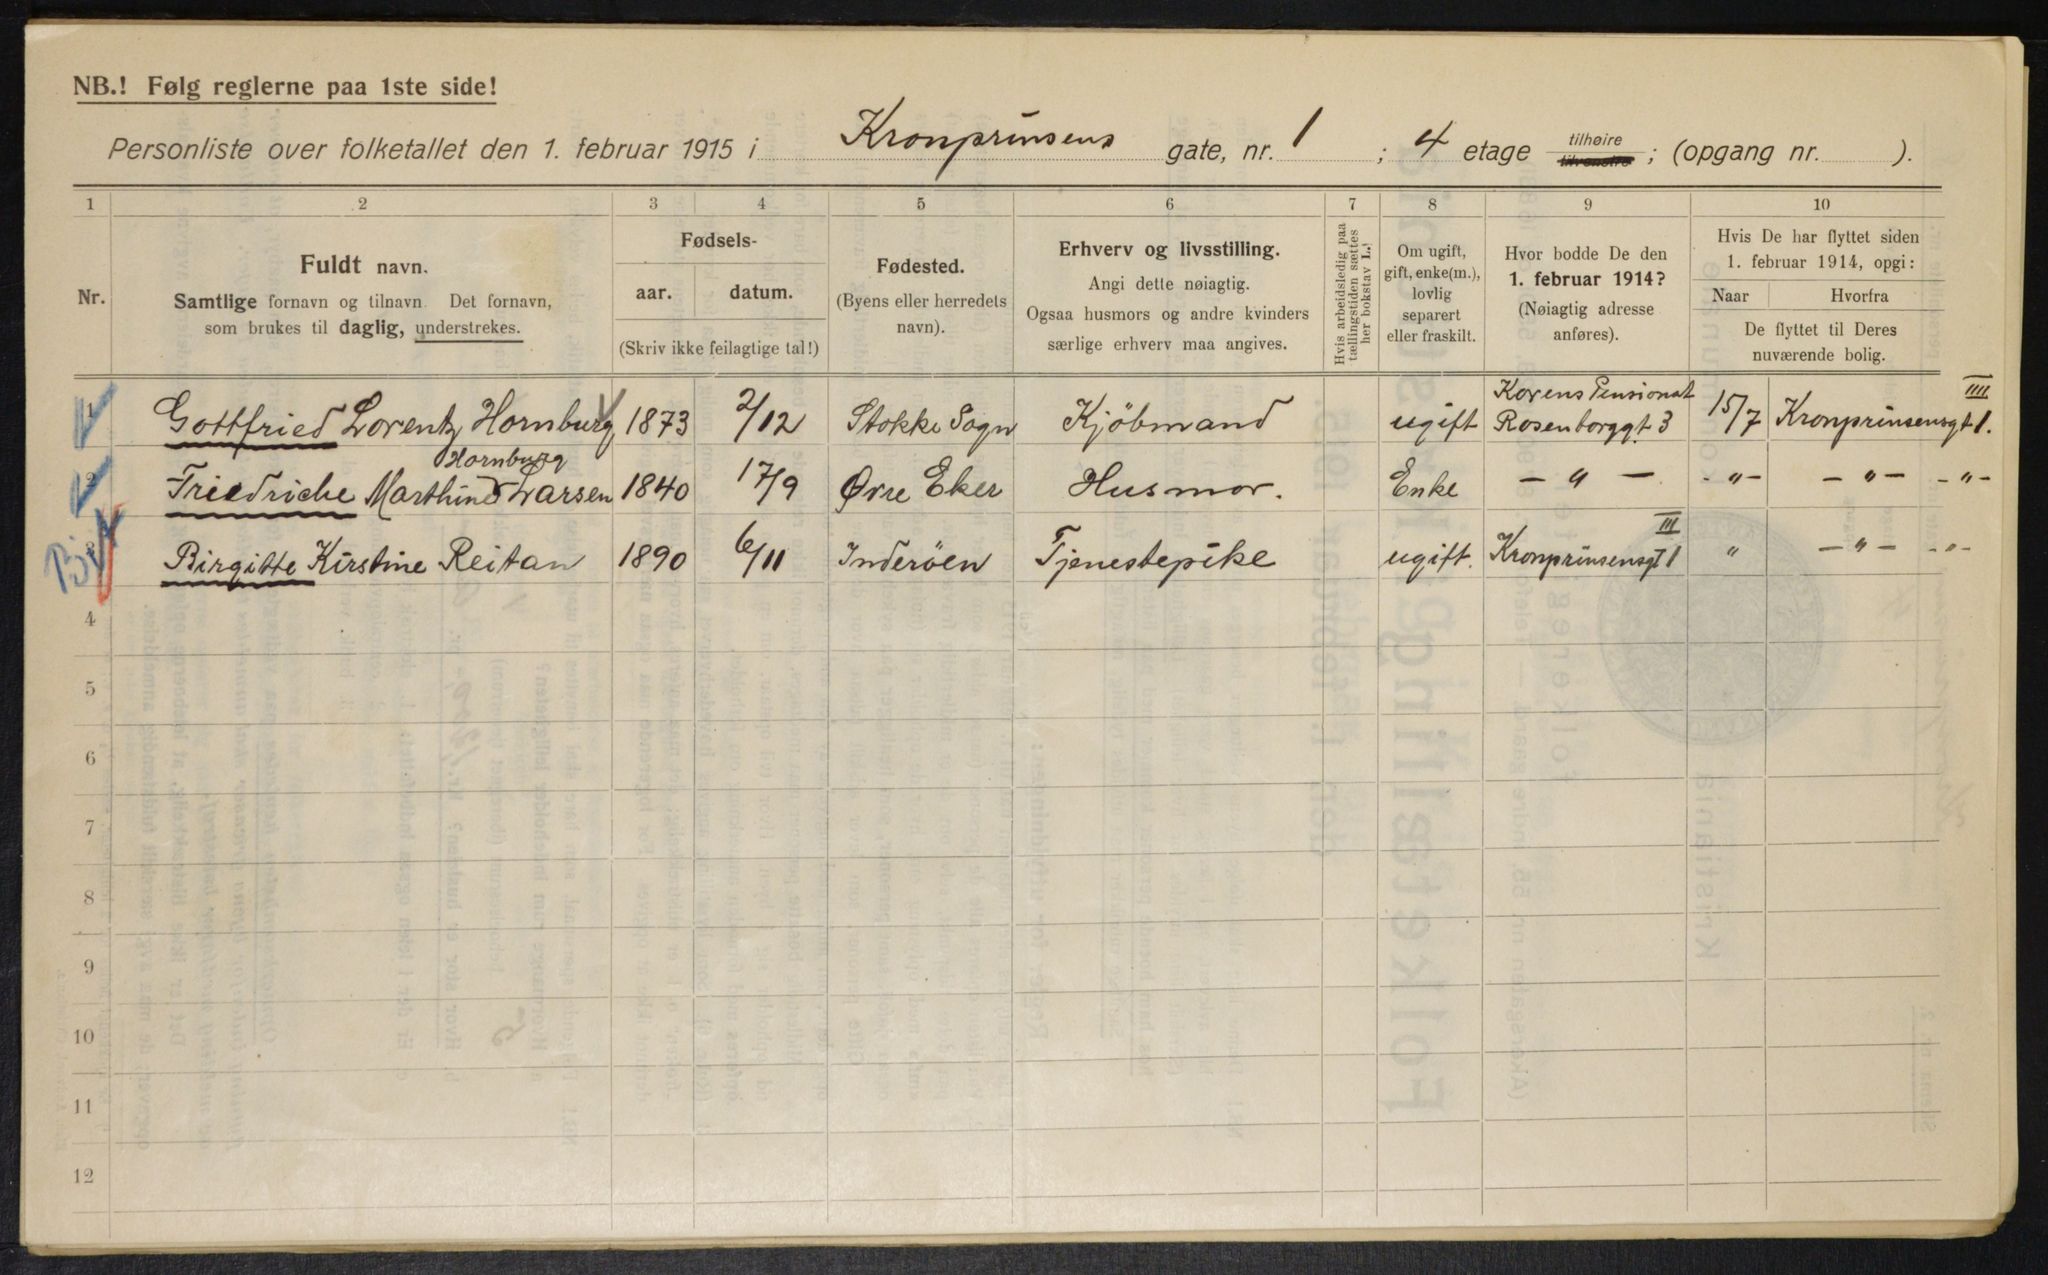 NB.! Følg reglerne paa 1ste side!
Personliste over folketallet den 1. februar 1915 i Kronprinsens gate, nr. 1 ; 4 etage tilhøire tilvenstre ; (opgang nr. ).
1 2 3 4 5 6 7 8 9 10
Nr.
Fuldt navn.
Samtlige fornavn og tilnavn. Det fornavn,
som brukes til daglig, understrekes.
Fødsels-
aar. datum.
(Skriv ikke feilagtige tal!)
Fødested.
(Byens eller herredets
navn).
Erhverv og livsstilling.
Angi dette nøiagtig.
Ogsaa husmors og andre kvinders
særlige erhverv maa angives.
Hvis arbeidsledig paa
tællingstiden sættes
her bokstav L.!
Om ugift,
gift, enke(m.),
lovlig
separert
eller fraskilt.
Hvor bodde De den
1. februar 1914?
(Nøiagtig adresse
anføres).
Hvis De har flyttet siden
1. februar 1914, opgi:
Naar Hvorfra
De flyttet til Deres
nuværende bolig.
1 Gottfried Lorentz Hornburg 1873 2/12 Stokke Sogn Kjöbmand ugift Korens Pensionat Rosenborggt 3 15/7 Kronprinsensgt 1. IIII
Hornburg
2 Friedriche Marthine Larsen 1840 17/9 Øvre Eker Husmor. Enke — " — - " - — " — - " -
3 Birgitte Kirstine Reitan 1890 6/11 Inderöen Tjenestepike ugift. Kronprinsensgt 1 III " — " — - " -
4
5
6
7
8
9
10
11
12